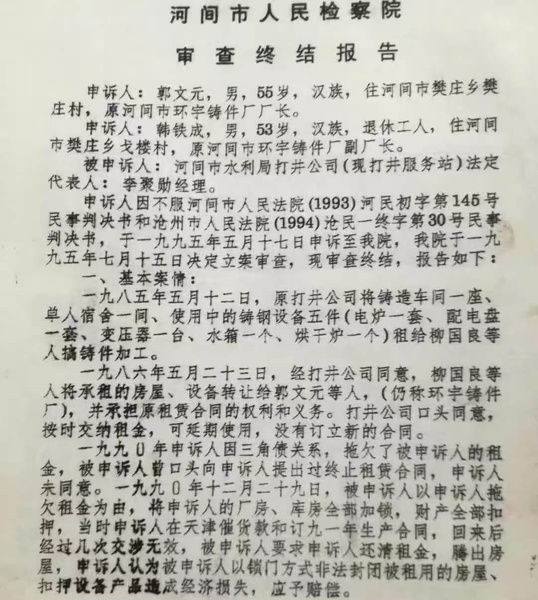 河间市人民检察院
审查终结报告
申诉人：郭文元，男，55岁，汉族，住河间市樊庄乡樊
庄村，原河间市环宇铸件厂厂长。
申诉人：韩铁成，男，53岁，汉族，退休工人，住河间
市樊庄乡戈楼村，原河间市环宇铸件厂副厂长。
被申诉人：河间市水利局打井公司(现打井服务站)法定
代表人：李聚勋经理。
申诉人因不服河间市人民法院(1993)河民初字第145号
民事判决书和沧州市人民法院(1994)沧民一终字第30号民事
判决书，于一九九五年五月十七日申诉至我院，我院于一九
九五年七月十五日决定立案审查，现审查终结，报告如下：
一、基本案情：
一九八五年五月十二日，原打井公司将铸造车间一座、
单人宿舍一间、使用中的铸钢设备五件(电炉一套、配电盘
一套、变压器一台、水箱一个、烘干炉一个)租给柳国良等
人搞铸件加工。
一九八六年五月二十三日，经打井公司同意，柳国良等
人将承租的房屋、设备转让给郭文元等人，(仍称环宇铸件
厂)，并承担原租赁合同的权利和义务。打井公司口头同意，
按时交纳租金，可延期使用，没有订立新的合同。
一九九〇年申诉人因三角债关系，拖欠了被申诉人的租
金，被申诉人曾口头向申诉人提出过终止租赁合同，申诉人
未同意。一九九〇年十二月二十九日，被申诉人以申诉人拖
欠租金为由，将申诉人的厂房、库房全部加锁，财产全部扣
押，当时申诉人在天津催货款和订九一年生产合同，回来后
经过几次交涉无效，被申诉人要求申诉人还清租金，腾出房
屋，申诉人认为被申诉人以锁门方式非法封闭被租用的房屋、
扣押设备产品造成经济损失，应予赔偿。